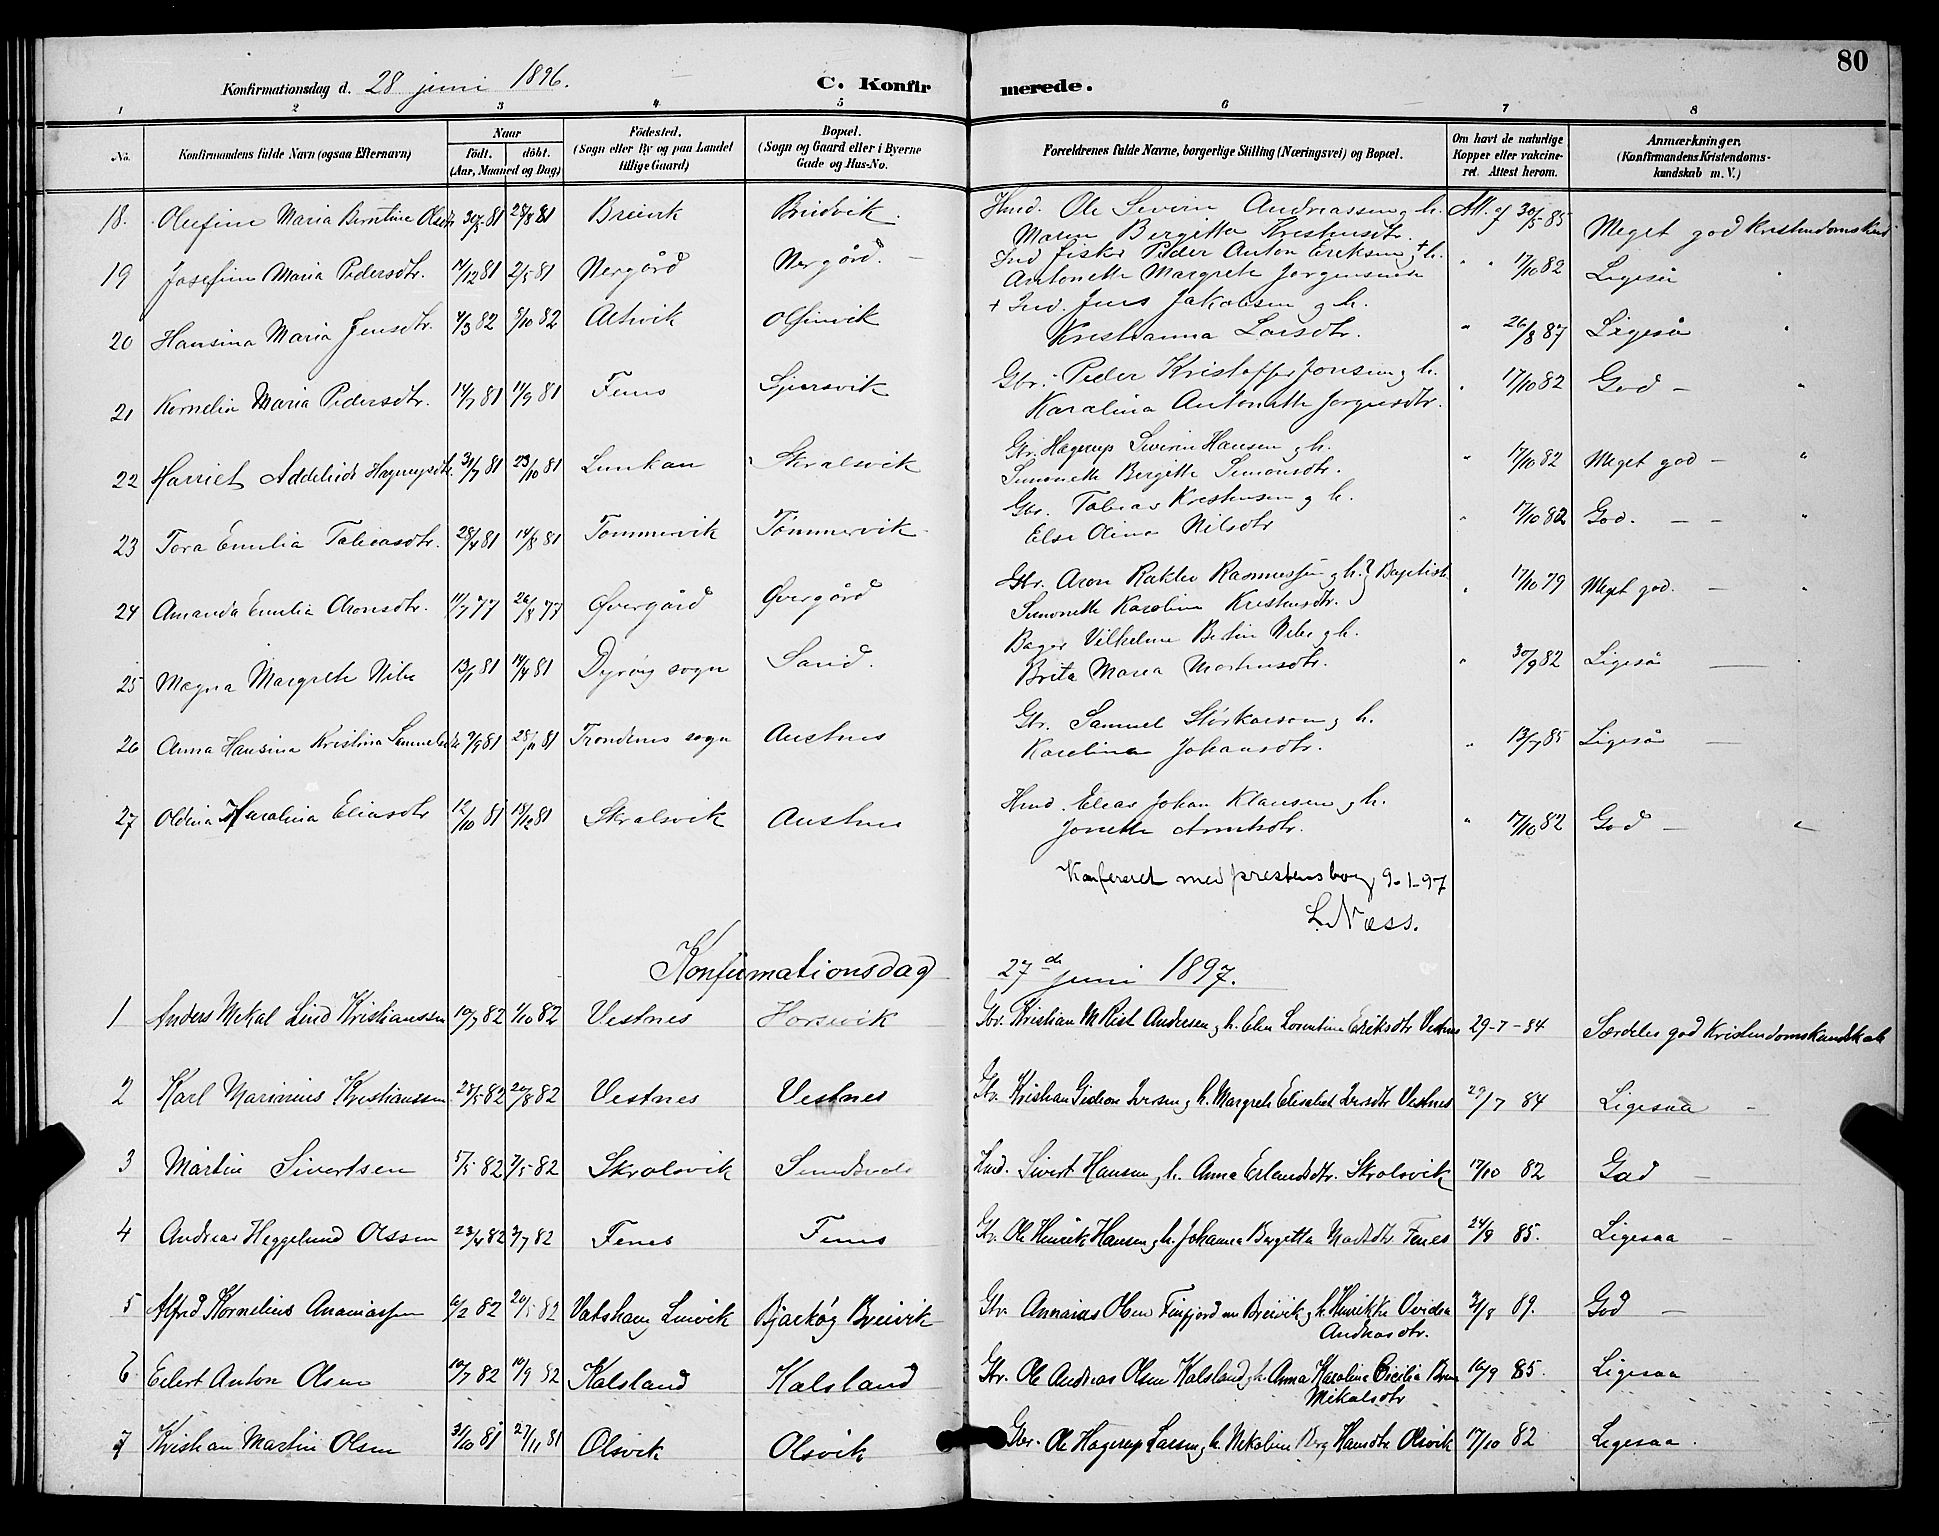 80
Konfirmationsdag d. 28 juni 1896. C. Konfirmerede.
1 2 3 4 5 6 7 8
No. Konfirmandens fulde Navn (ogsaa Efternavn) Naar Födt. döbt. (Aar, Maaned og Dag) Födested. (Sogn eller By og paa Landet tillige Gaard) Bopæl. (Sogn og Gaard eller i Byerne Gade og Hus-No. Forældrenes fulde Navne, borgerlige Stilling (Næringsvei) og Bopæl. Om havt de naturlige Kopper eller vakcineret. Attest herom. Anmærkninger, (Konfirmandens Kristendomskundskab m. V.)
18. Olufine Maria Berntine 81 28/8 81 Breivik Breidvik. Hmd. Ole Severin Andreassen g h. Maren Bergitta Att. af 30/5 85 Meget god
19 Josefine Maria Pedersdtr. 81 2/5 81 Nergård Nergård. Ind fisker Peder Anton Eriksen g h. Antonette Margrete 17/10 82 Ligeså
20 Hansina Maria Jensdtr. 4/3 82 82 Altevik + Ind. Jens Jakobsen g h. Kristianna Larsdtr. " 26/8 87 Ligeså "
21 Kornelia Maria Pedersdtr. 14/7 81 11/9 81 Fenes Gbr. Peder Kristoffer Jonsen g h. Karalina Antonette Jorgensdtr. " 17/10 82 God - "
22 Harriet 31/7 81 23/10 81 Lunkan Skralsvik Gbr. Hagerup Severin Hansen g h. Simonette Bergitte Simonsdtr. " 17/10 82 Meget god - "
23 Tora Emilia Tobiasdtr. 28/4 81 14/8 81 Tommervik Tommervik Gbr. Tobias Kristensen g h. Else Olina Nilsdtr " 17/10 82 God. - - "
24 Amanda Emilia Aronsdtr. 11/7 77 26/8 77 Øvergård Øvergård Gbr. Aron Rasmussen g h. Simonette Karolina Kristensdtr. " 17/10 79 Meget god. - "
25 Magna Margrete 13/1 81 14/4 81 Dyröy sogn Sand. Bager Vilhelm g h. Brita Maria " 30/9 82 Ligeså -
26 Anna Hansina Kristina 81 81 Trondenes sogn Austnes Gbr. Samuel g h. Karolina Johansdtr. " 13/7 85 Ligeså -
27 Oldina Karalina Eliasdtr 12/10 81 18/12 81 Skralsvik Austnes Hmd. Elias Johan Klausen g h. Jonette " 17/10 82 God - "
Konfereret med prestens bog 9-1-97
L. Næss.
Konfirmationsdag 27de juni 1897.
1 Anders Mikal Lind Kristianssen 10/7 82 1/10 82 Vestnes Gbr. Kristian M Rist Andersen g h. Elen Lorentine Eriksdtr Vestnes 29-7-84 Særdeles god Kristendomskundskab
2 Karl Marinius Kristianssen 28/5 82 20/8 82 Vestnes Vestnes Gbr. Kristian Gideon Iversen g h. Margrete Elisabet Iversdtr Vestnes 29/7 84 Ligesaa -
3 Martin Sivertsen 5/5 82 82 Skrolsvik Hmd. Sivert Hansen g h. Anna Erlandsdtr. Skrolsvik 17/10 82 God -
4 Andreas Heggelund Olssen 23/4 82 3/7 82 Fenes Fenes Gbr. Ole Henrik Hansen g h. Johanna Bergitta Madsdtr Fenes 24/9 85. Ligesaa -
5 Alfred Kornelius Ananiassen 82 20/5 82 Bjarköy Breivik Gbr. Annanias Olsen Finfjord nu Breivik g h. Henrikke Andreasdtr. 89. God -
6 Eilert Anton Olsen 19/7 82 82 Kalsland Kalsland Gbr. Ole Andreas Olsen Kalsland g h. Anna Karolina Cecilia Mikalsdtr 16/9 85. Ligesaa
7 Kristian Martin Olsen 31/10 81 27/11 81 Olsvik Olsvik Gbr. Ole Hagerup Larsen g h. Nikoline Hansdtr Olsvik 17/10 82 Ligesaa.